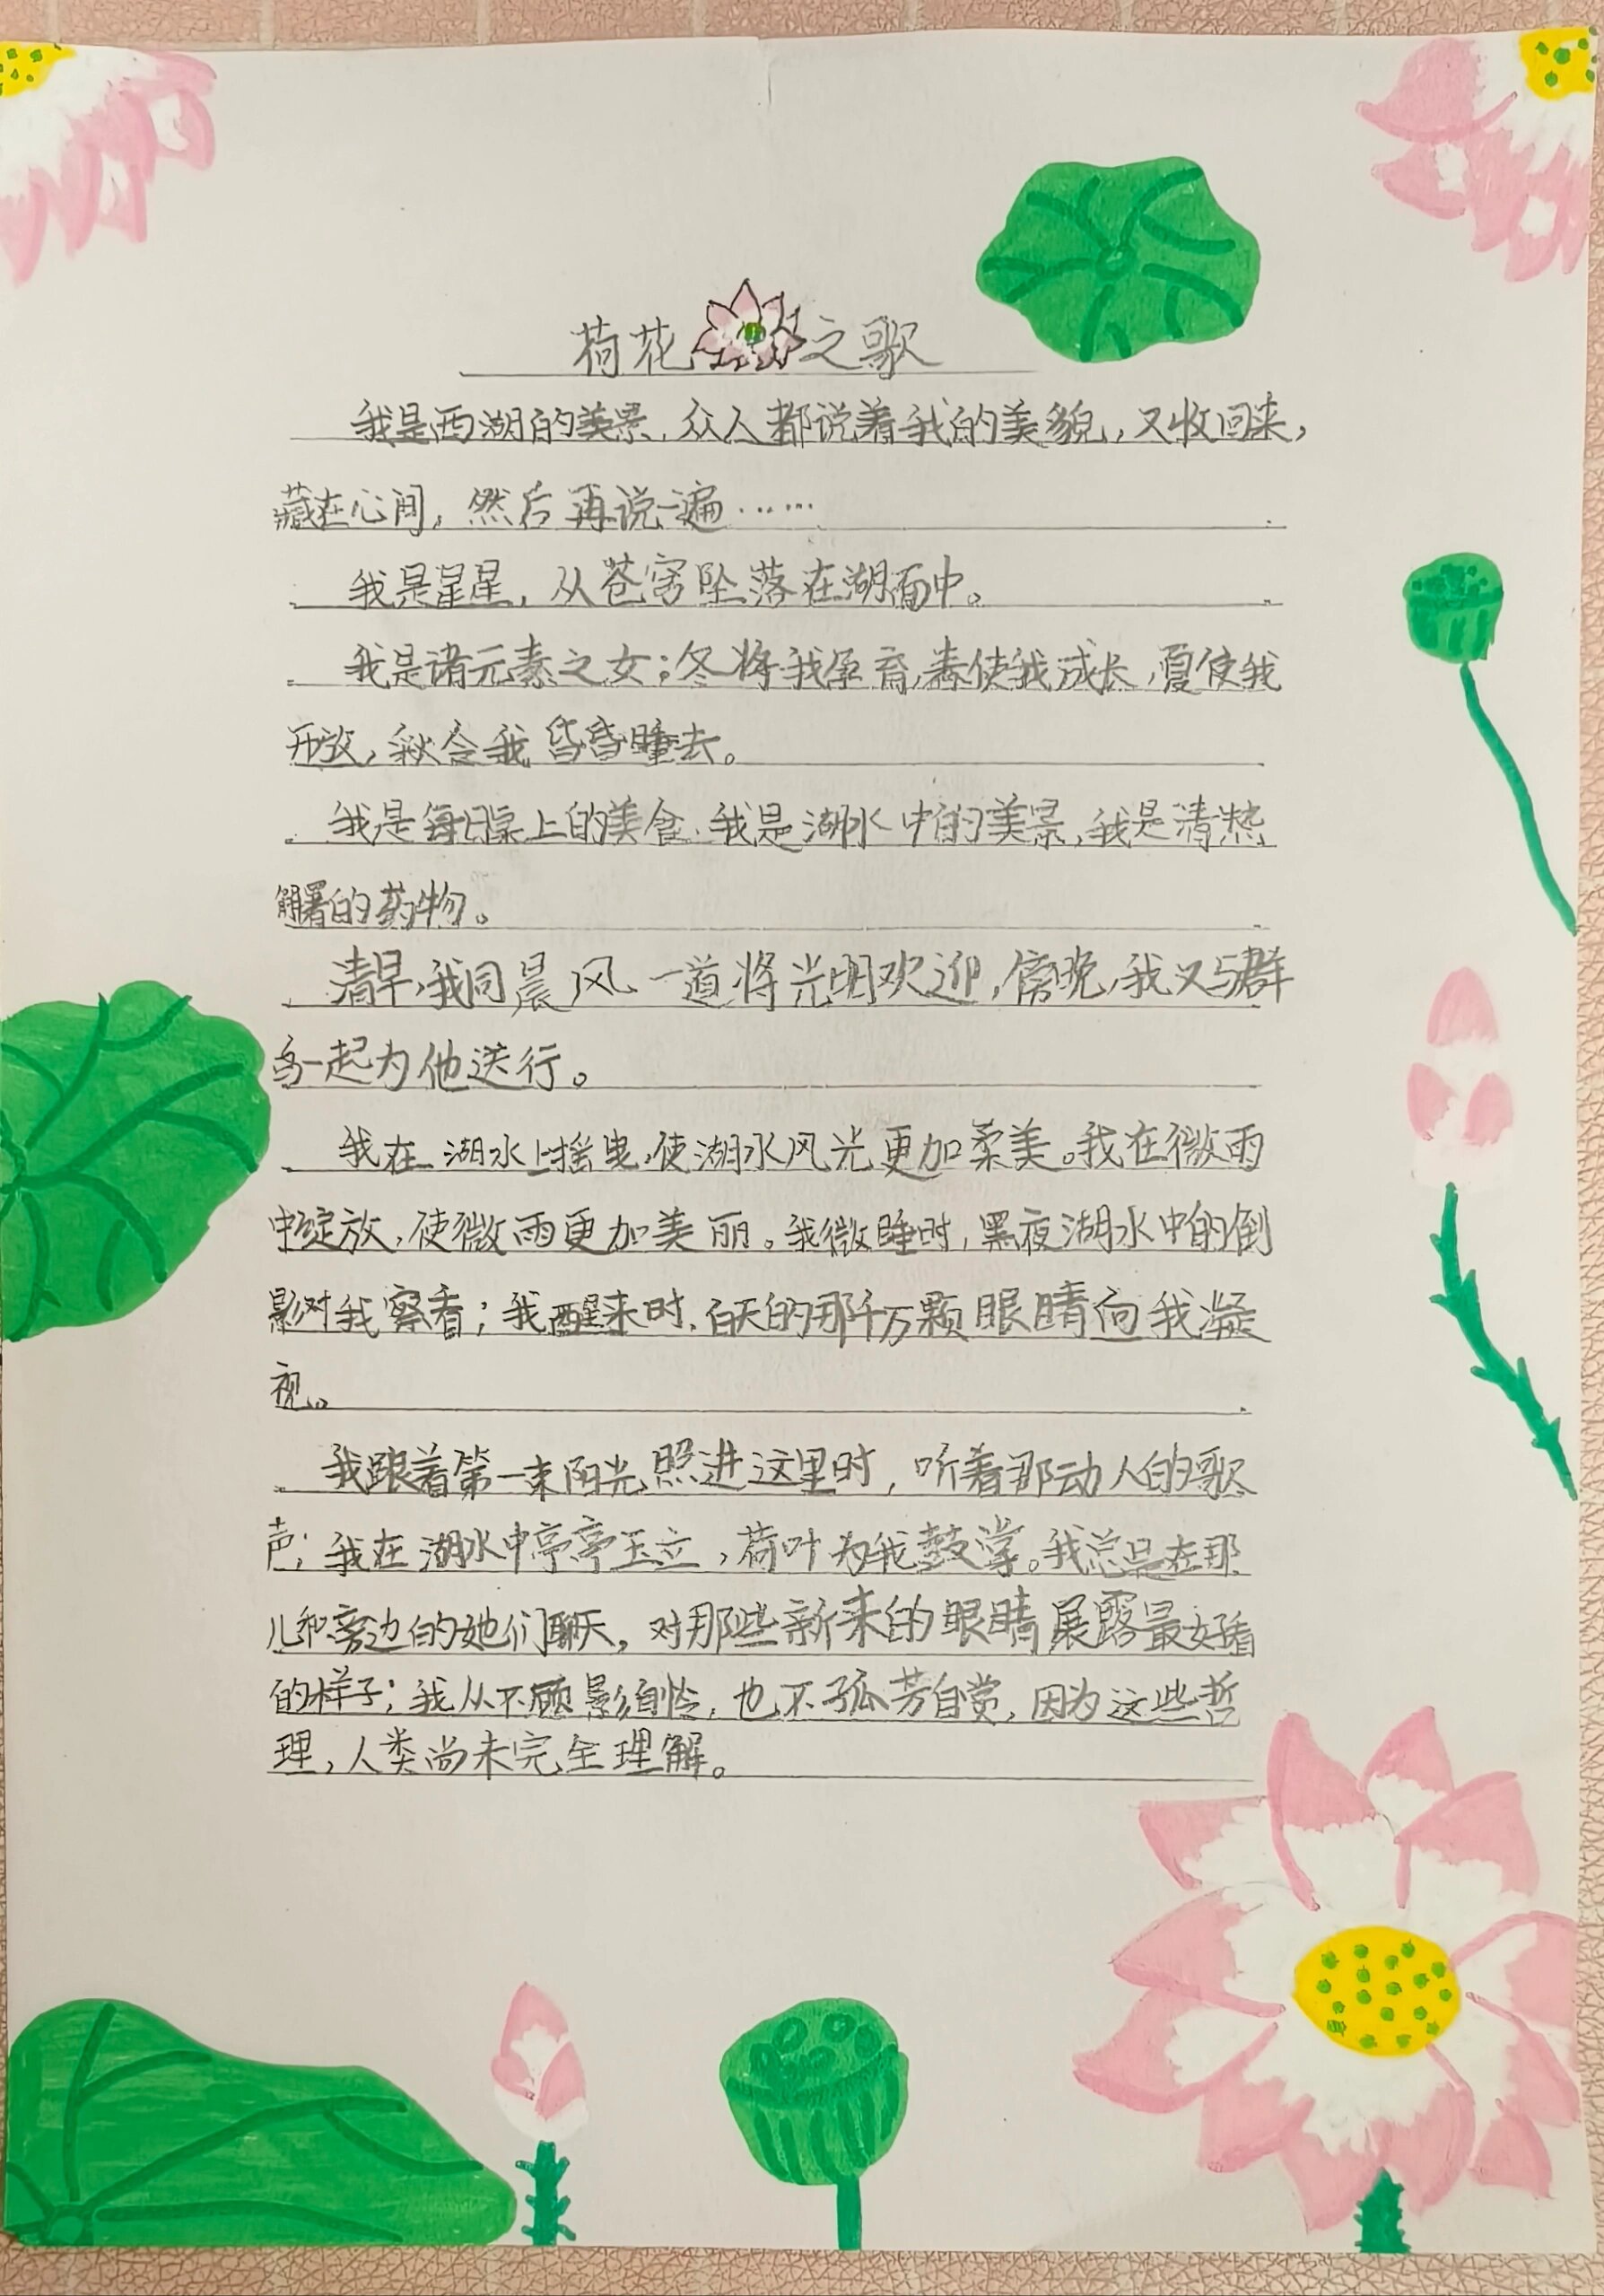 荷花之歌
我是西湖的美景，众人都说着我的美貌，又收回来，
藏在心间，然后再说一遍……
我是星星，从苍穹坠落在湖面中。
我是诸元素之女；冬将我孕育，春使我成长，夏使我
开放，秋令我昏昏睡去。
我是每日桌上的美食，我是湖水中的美景，我是清热
解暑的药物。
清早，我同晨风一道将光明欢迎，傍晚，我又与群
鸟一起为他送行。
我在湖水上摇曳，使湖水风光更加柔美。我在微雨
中绽放，使微雨更加美丽。我微睡时，黑夜湖水中的倒
影对我察看；我醒来时，白天的那千万颗眼睛向我凝
视。
我跟着第一束阳光照进这里时，听着那动人的歌
声；我在湖水中亭亭玉立，荷叶为我鼓掌。我总是在那
儿和旁边的她们聊天，对那些新来的眼睛展露最好看
的样子；我从不顾影自怜，也不孤芳自赏，因为这些哲
理，人类尚未完全理解。